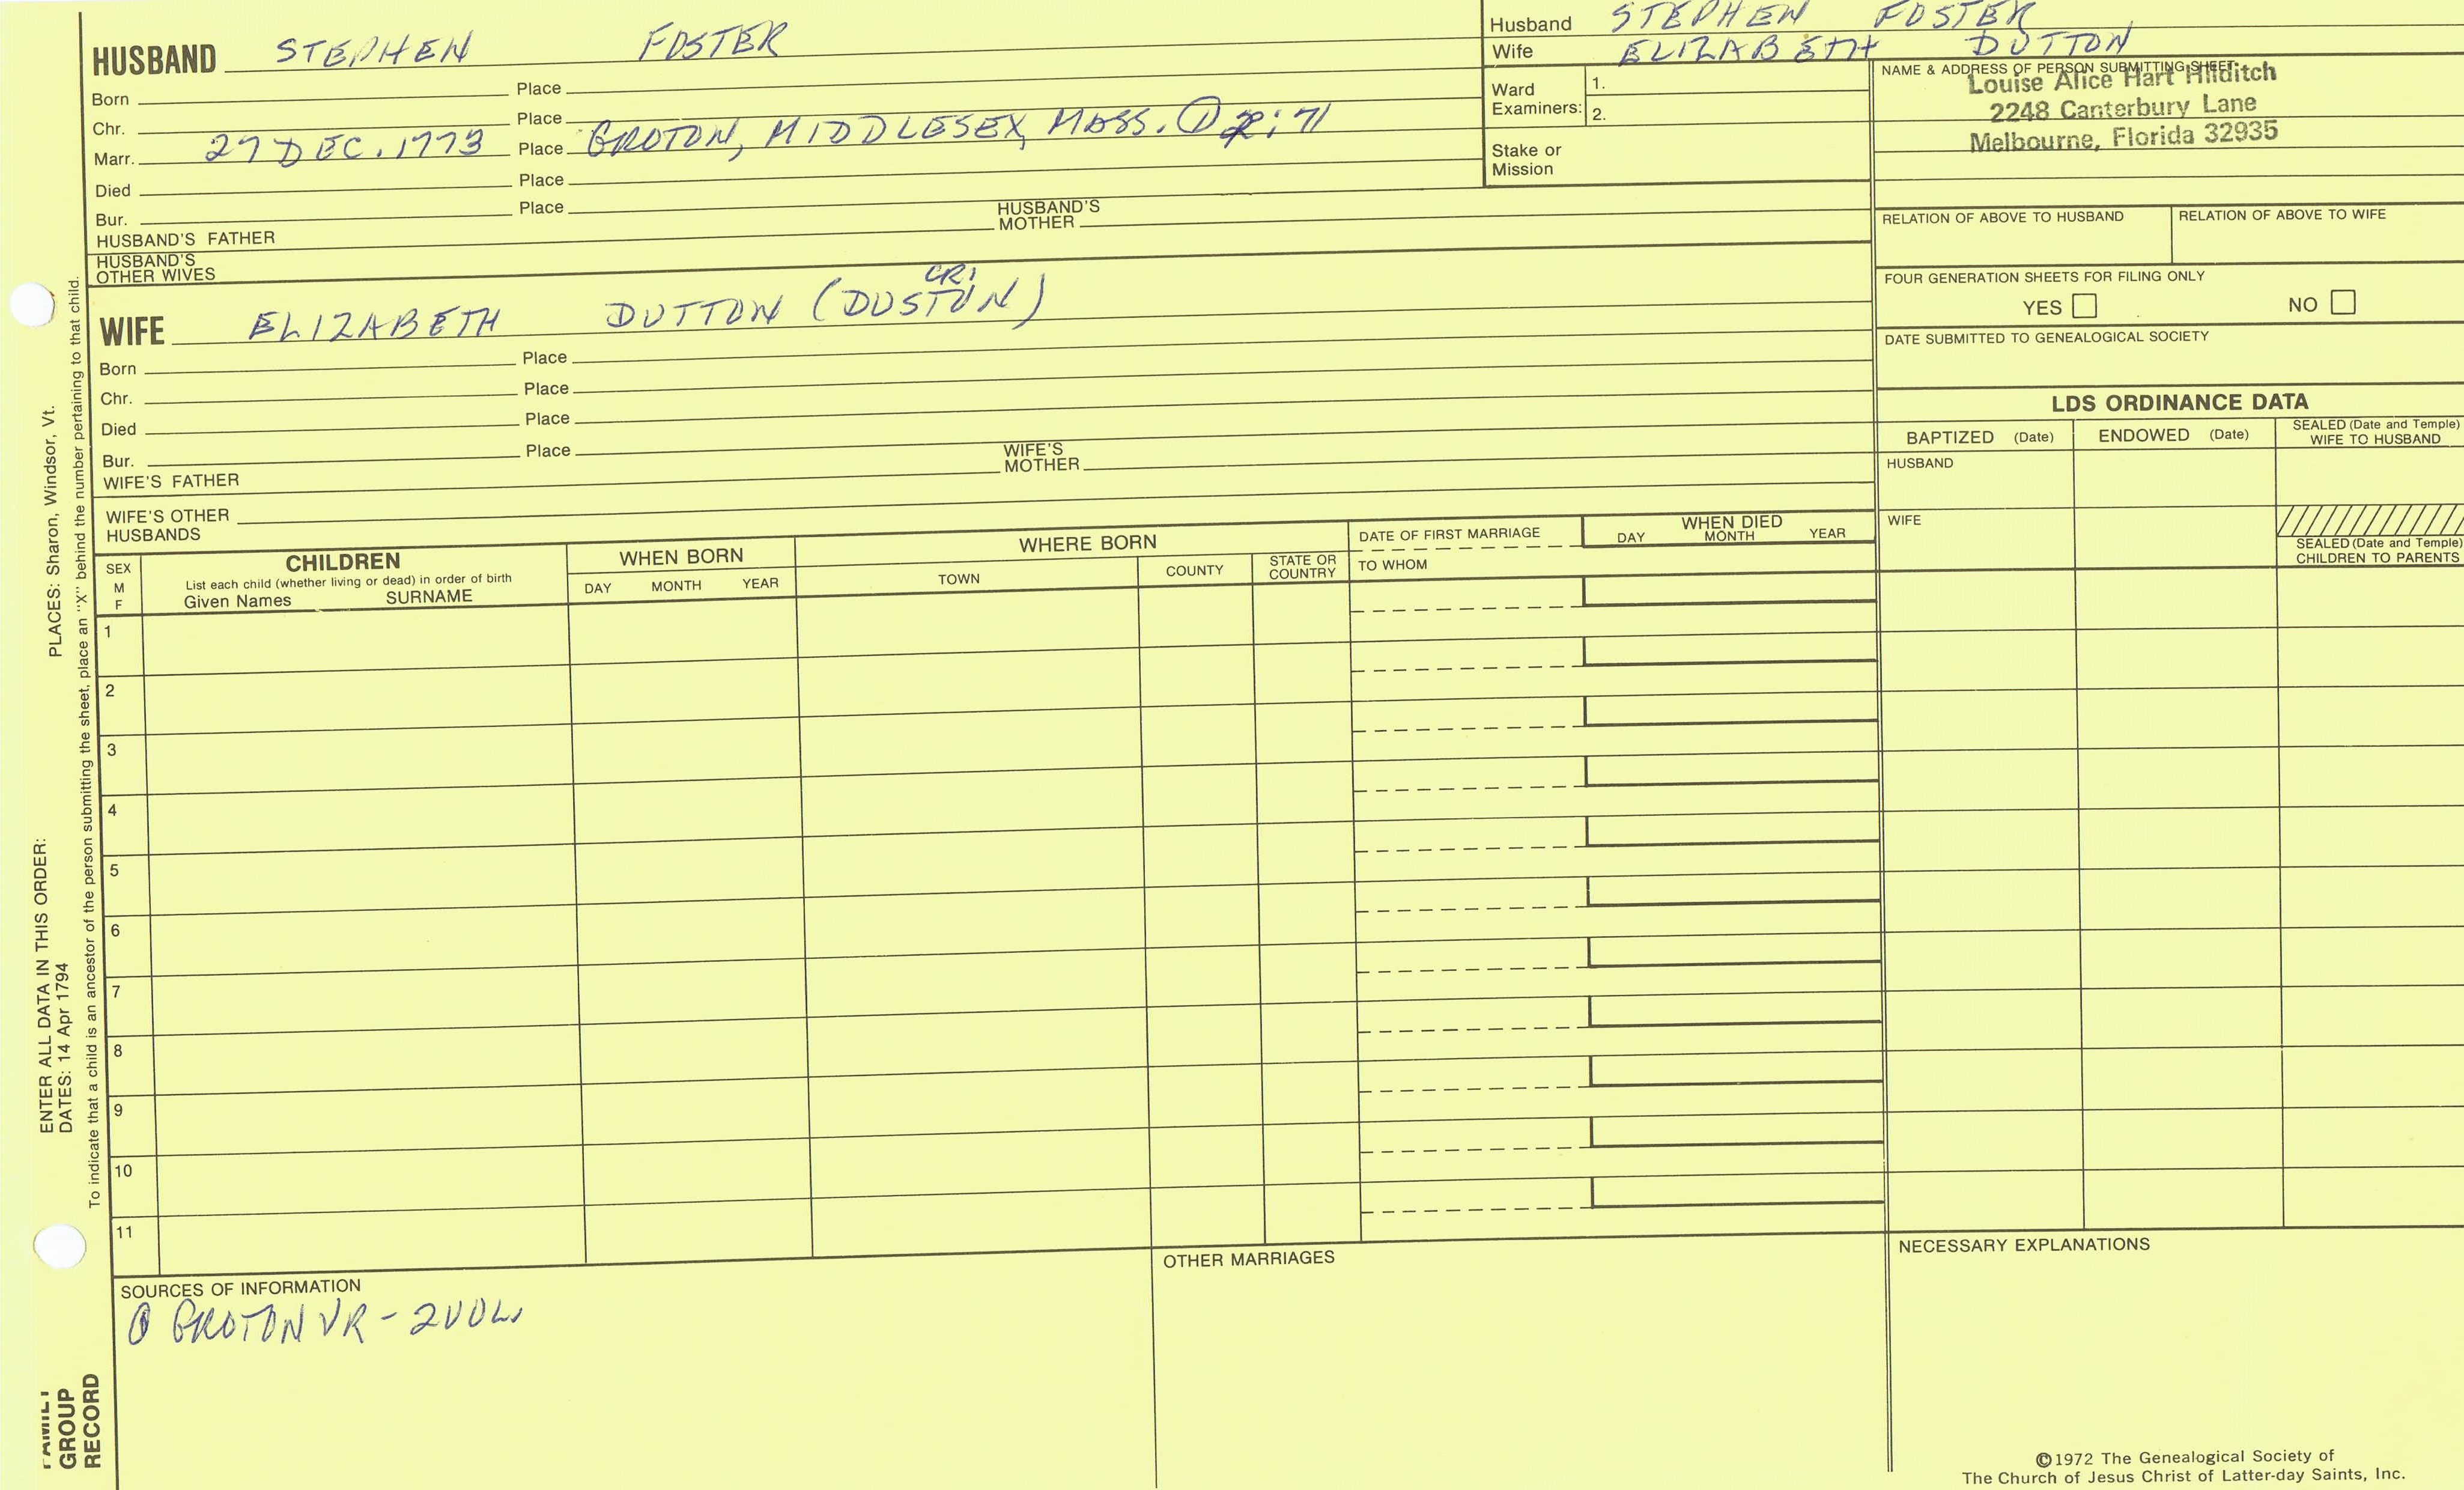 HUSBAND STEPHEN FOSTER
Born Place
Chr. Place
Marr. 27 DEC. 1773 Place GROTON, MIDDLESEX, MASS. ① 2:71
Died Place
Bur. Place
HUSBAND'S FATHER HUSBAND'S MOTHER
HUSBAND'S OTHER WIVES
Husband STEPHEN FOSTER
Wife ELIZABETH DUTTON
Ward Examiners: 1.
2.
Stake or Mission
NAME & ADDRESS OF PERSON SUBMITTING SHEET
Louise Alice Hart Hilditch
2248 Canterbury Lane
Melbourne, Florida 32935
RELATION OF ABOVE TO HUSBAND RELATION OF ABOVE TO WIFE
FOUR GENERATION SHEETS FOR FILING ONLY
YES NO
DATE SUBMITTED TO GENEALOGICAL SOCIETY
CR1
WIFE ELIZABETH DUTTON (DUSTON)
Born Place
Chr. Place
Died Place
Bur. Place
WIFE'S FATHER WIFE'S MOTHER
WIFE'S OTHER HUSBANDS
LDS ORDINANCE DATA
BAPTIZED (Date) ENDOWED (Date) SEALED (Date and Temple) WIFE TO HUSBAND
HUSBAND
WIFE
SEALED (Date and Temple) CHILDREN TO PARENTS
SEX M F
CHILDREN
List each child (whether living or dead) in order of birth
Given Names SURNAME
WHEN BORN
DAY MONTH YEAR
WHERE BORN
TOWN COUNTY STATE OR COUNTRY
DATE OF FIRST MARRIAGE
TO WHOM
WHEN DIED
DAY MONTH YEAR
1
2
3
4
5
6
7
8
9
10
11
SOURCES OF INFORMATION
① GROTON VR - 2 VOL.
OTHER MARRIAGES
NECESSARY EXPLANATIONS
©1972 The Genealogical Society of
The Church of Jesus Christ of Latter-day Saints, Inc.
ENTER ALL DATA IN THIS ORDER:
DATES: 14 Apr 1794 PLACES: Sharon, Windsor, Vt.
To indicate that a child is an ancestor of the person submitting the sheet, place an "X" behind the number pertaining to that child.
FAMILY
GROUP
RECORD